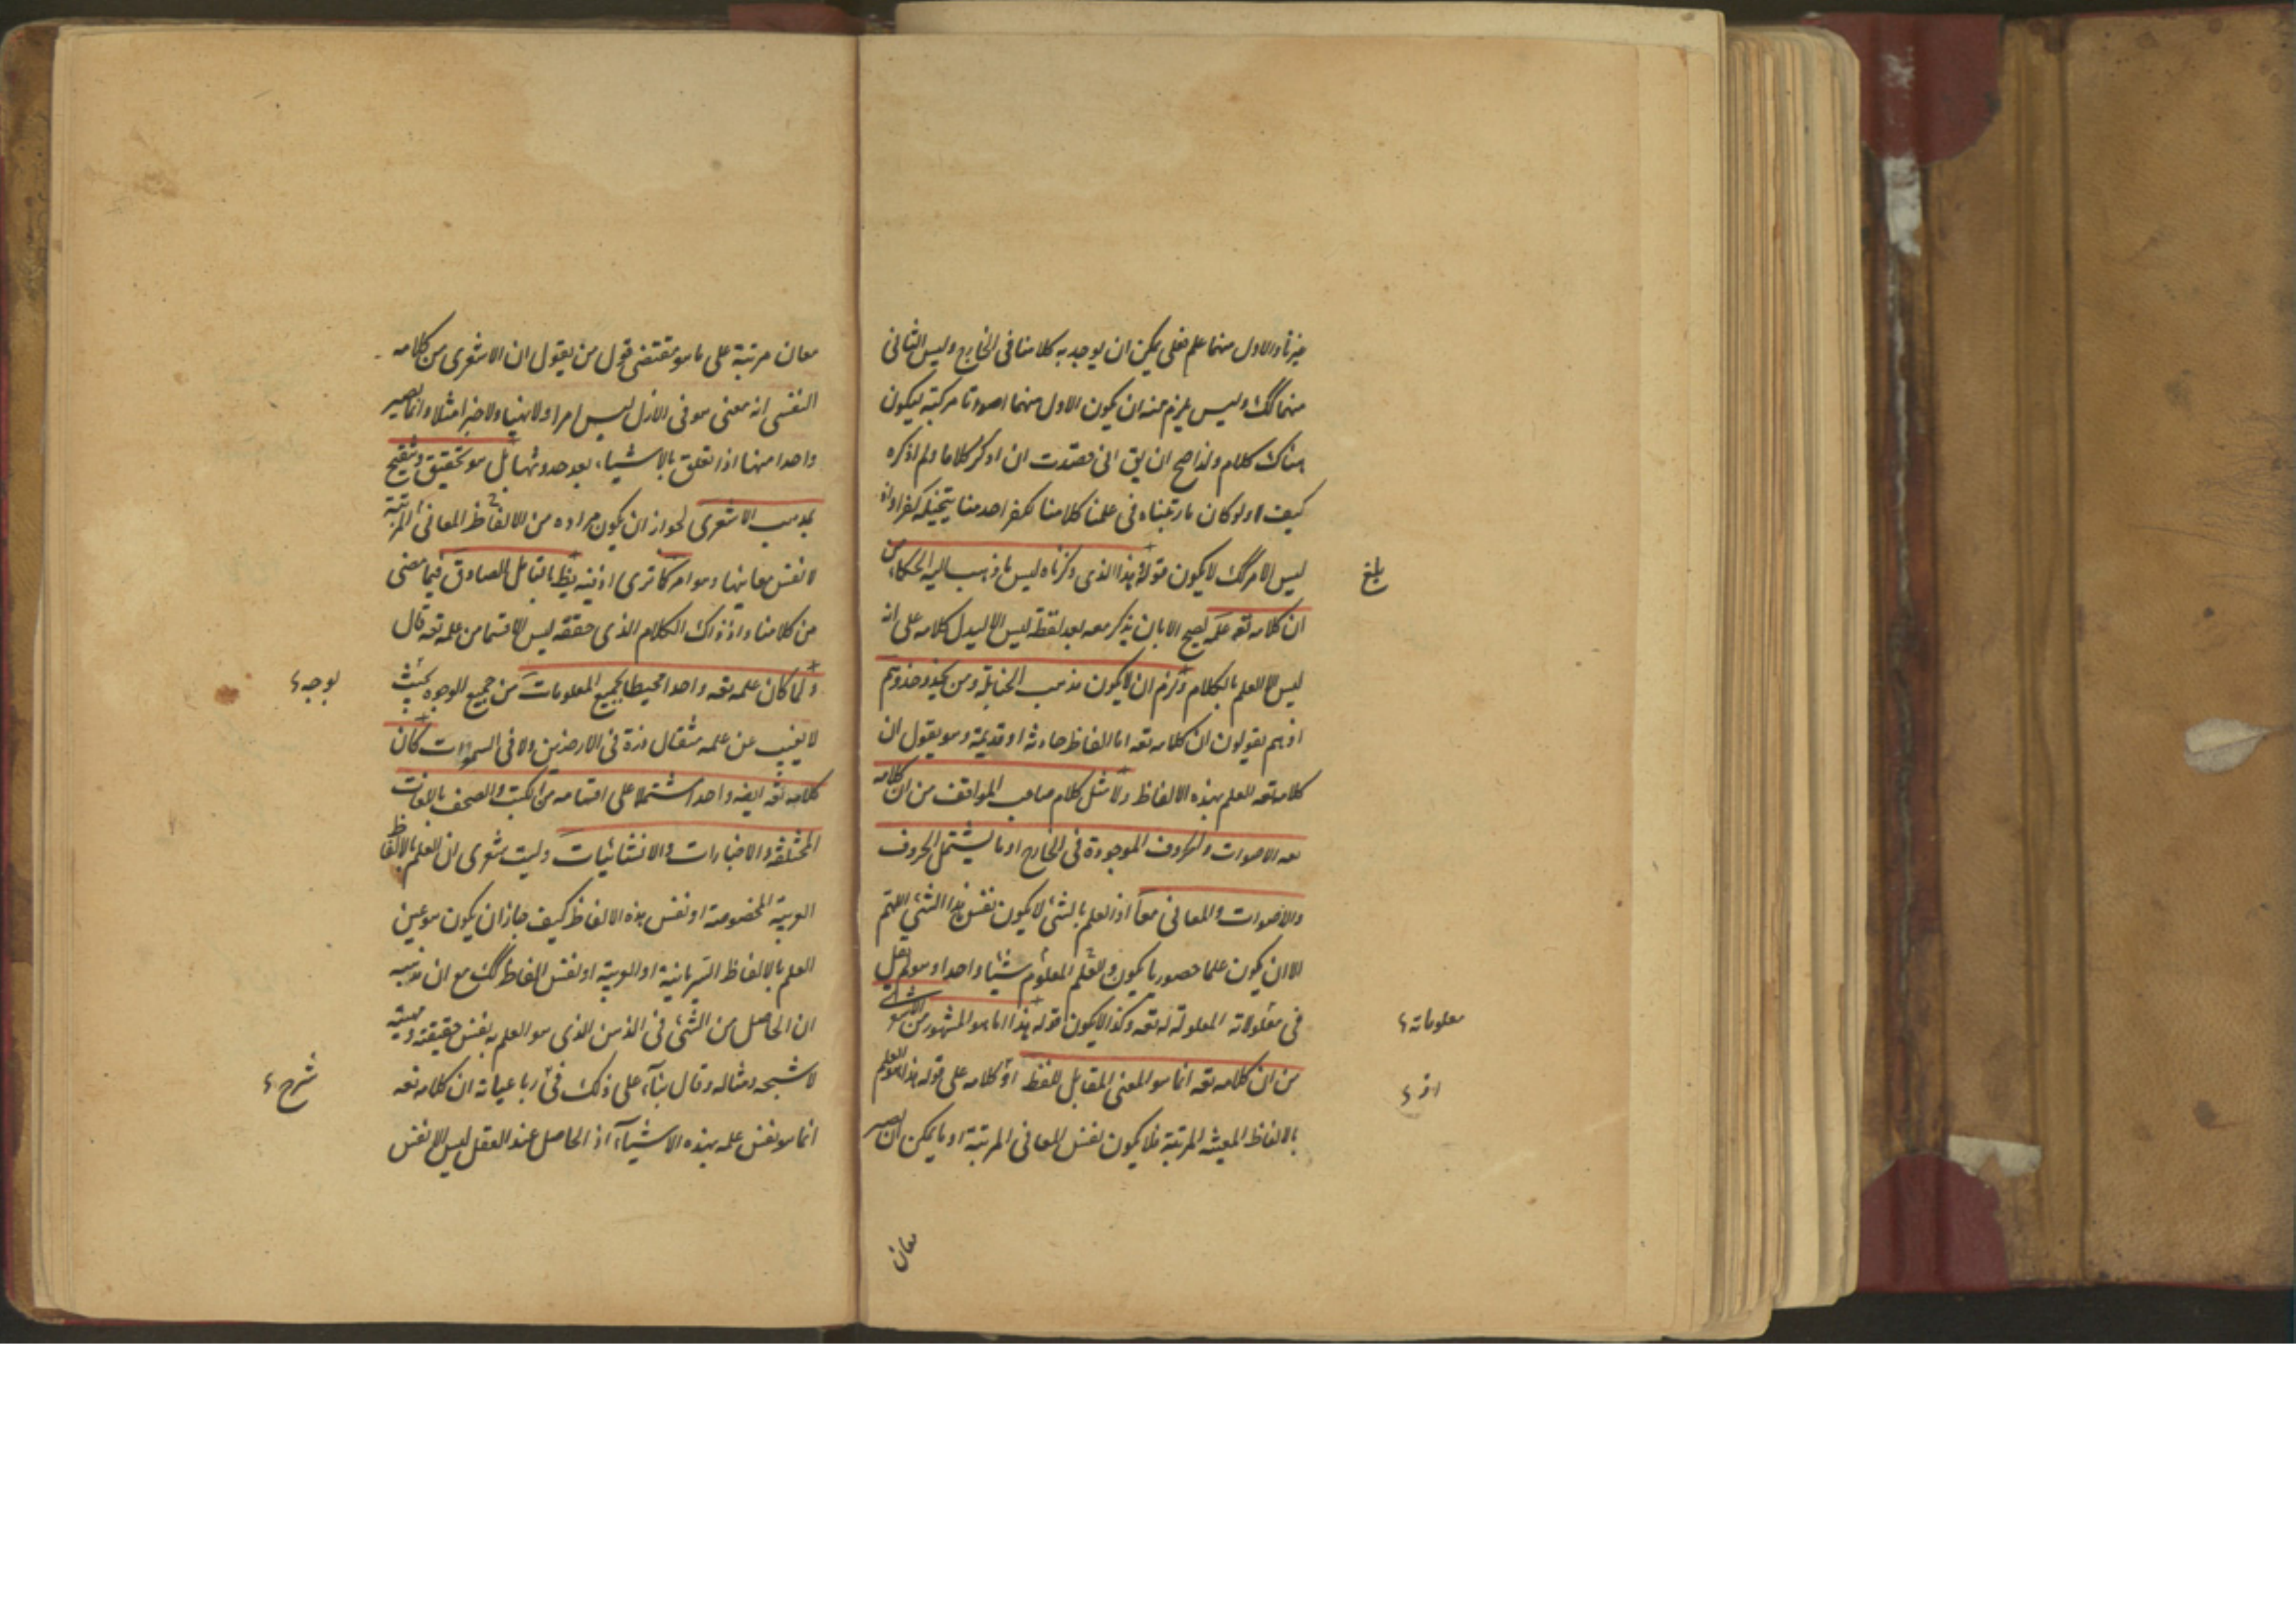 غيرنا والاول منهما علم فعلى يمكن ان يوجد به كلامنا فى الخارج وليس الثانى
منهما كك وليس يلزم منه ان يكون الاول منهما اصواتا مركبة ليكون
هناك كلام ولذا صح ان يق انى قصدت ان اذكر كلاما ولم اذكره
كيف ولو كان ما رتبناه فى علمنا كلامنا لكفر احد منا بتخيله كفرا واذ
ليس الامر كك لا يكون قوله هذا الذى ذكرناه ليس ما ذهب اليه الحكماء من
بلغ
ان كلامه تعه علمه يصح الا بان يذكر معه بعد لفظة ليس الا ليدل كلامه على انه
ليس الا العلم بالكلام ولزم ان لا يكون مذهب الحنابلة ومن يحذو حذوهم
اذ هم يقولون ان كلامه تعه اما الفاظ حادثه او قديمة وهو يقول ان
كلامه تعه العلم بهذه الالفاظ ولا مثل كلام صاحب المواقف من ان كلامه
تعه الاصوات والحروف الموجودة فى الخارج او ما يشتمل الحروف
والاصوات والمعانى معا اذ العلم بالشئ لا يكون نفس هذا الشئ اللهم
الا ان يكون علما حضوريا يكون العلم المعلوم شيئا واحدا وهو لم يقل
فى معلولاته المعلولة له تعه وكذا لا يكون قوله هذا اما هو المشهور من الاشعرى
معلوماته
من ان كلامه تعه انما هو المعنى المقابل للفظ اذ كلامه على قوله هذا هو العلم
اذ
بالالفاظ المعينه المرتبة فلا يكون نفس المعانى المرتبة او ما يمكن ان يصير
معان
معان مرتبة على ما هو مقتضى قول من يقول ان الاشعرى من كلامه
النفسى انه معنى هو فى الازل ليس امرا ولا نهيا ولا خبرا مثلا وانما يصير
واحدا منها اذا تعلق بالاشياء بعد حدوثها بل هو تحقيق وتنقيح
لمذهب الاشعرى لجواز ان يكون مراده من الالفاظ المعانى المرتبة
لا نفس معانيها وهو امر كما ترى اذ فيه يظ بالتامل الصادق فيما مضى
من كلامنا واذ ذاك الكلام الذى حققه ليس الا قسما من علمه تعه قال
ولما كان علمه تعه واحدا محيطا بجميع المعلومات من جميع الوجوه بحيث
بوجه
لا يغيب عن علمه مثقال ذرة فى الارضين ولا فى السموات كان
كلامه تعه ايضه واحدا مشتملا على اقسامه من الكتب والصحف باللغات
المختلفة والاخبارات والانشائيات وليت شعرى ان العلم بالالفاظ
العربية المخصوصة او نفس هذه الالفاظ كيف جاز ان يكون هو عين
العلم بالالفاظ السريانية او العربية او نفس الفاظ كك مع ان مذهبه
ان الحاصل من الشئ فى الذهن الذى هو العلم به نفس حقيقته ومهيته
لا شبحه ومثاله وقال بناء على ذلك فى رباعياته ان كلامه تعه
شرح
انما هو نفس علمه بهذه الاشياء اذ الحاصل عند العقل ليس الا نفس